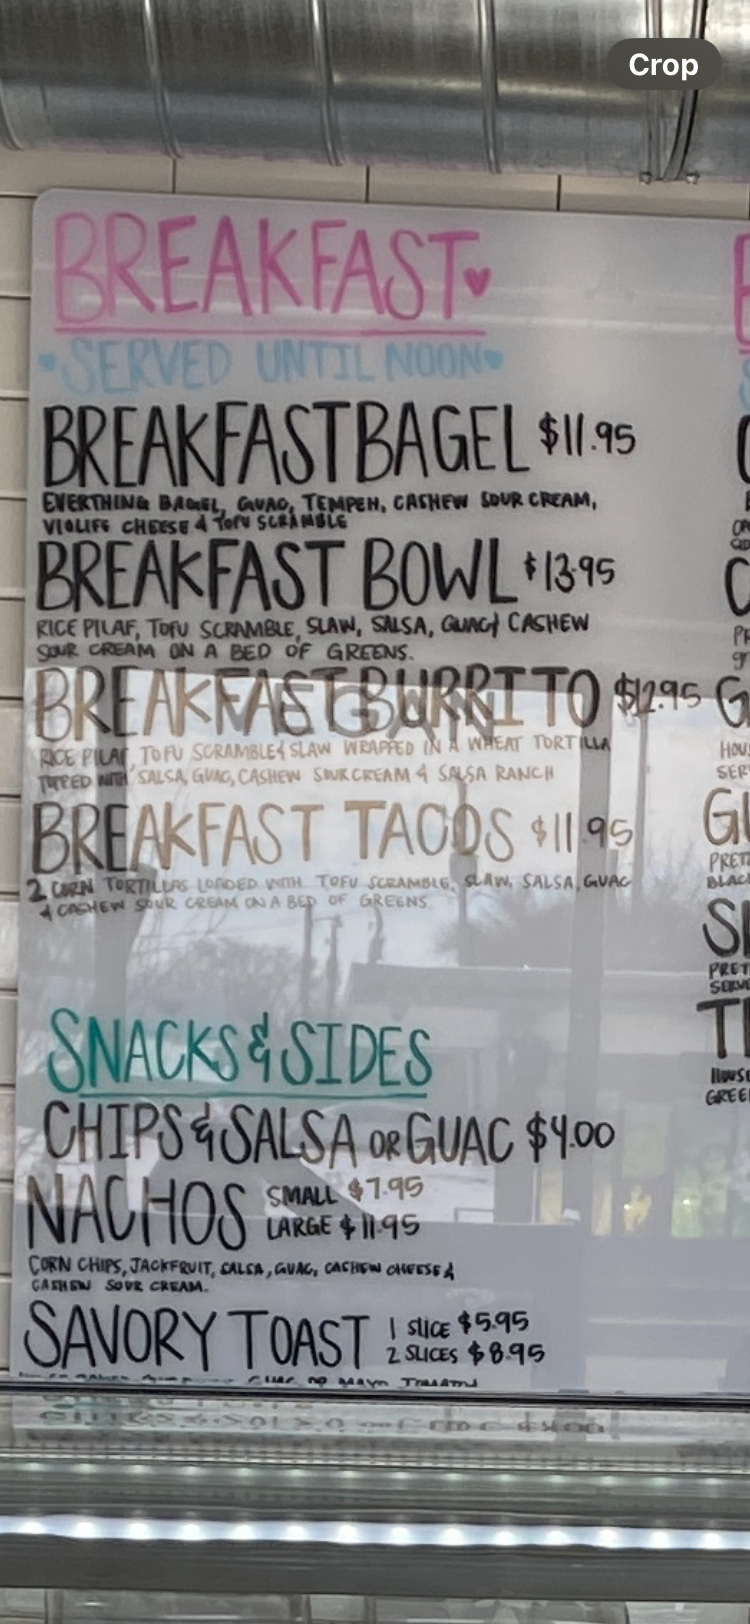 Crop
BREAKFAST
SERVED UNTIL NOON
BREAKFAST BAGEL $11.95
EVERTHING BAGEL, GUAC, TEMPEH, CASHEW SOUR CREAM,
VIOLIFE CHEESE & TOFU SCRAMBLE
BREAKFAST BOWL $13.95
RICE PILAF, TOFU SCRAMBLE, SLAW, SALSA, GUAC & CASHEW
SOUR CREAM ON A BED OF GREENS.
BREAKFAST BURRITO $12.95
RICE PILAF, TOFU SCRAMBLE & SLAW WRAPPED IN A WHEAT TORTILLA
TOPPED WITH SALSA, GUAC, CASHEW SOUR CREAM & SALSA RANCH
BREAKFAST TACOS $11.95
2 CORN TORTILLAS LOADED WITH TOFU SCRAMBLE, SLAW, SALSA, GUAC
& CASHEW SOUR CREAM ON A BED OF GREENS.
SNACKS & SIDES
CHIPS & SALSA OR GUAC $4.00
NACHOS SMALL $7.95
LARGE $11.95
CORN CHIPS, JACKFRUIT, SALSA, GUAC, CASHEW CHEESE &
CASHEW SOUR CREAM.
SAVORY TOAST 1 SLICE $5.95
2 SLICES $8.95
GUAC OR MAYO TOMATO